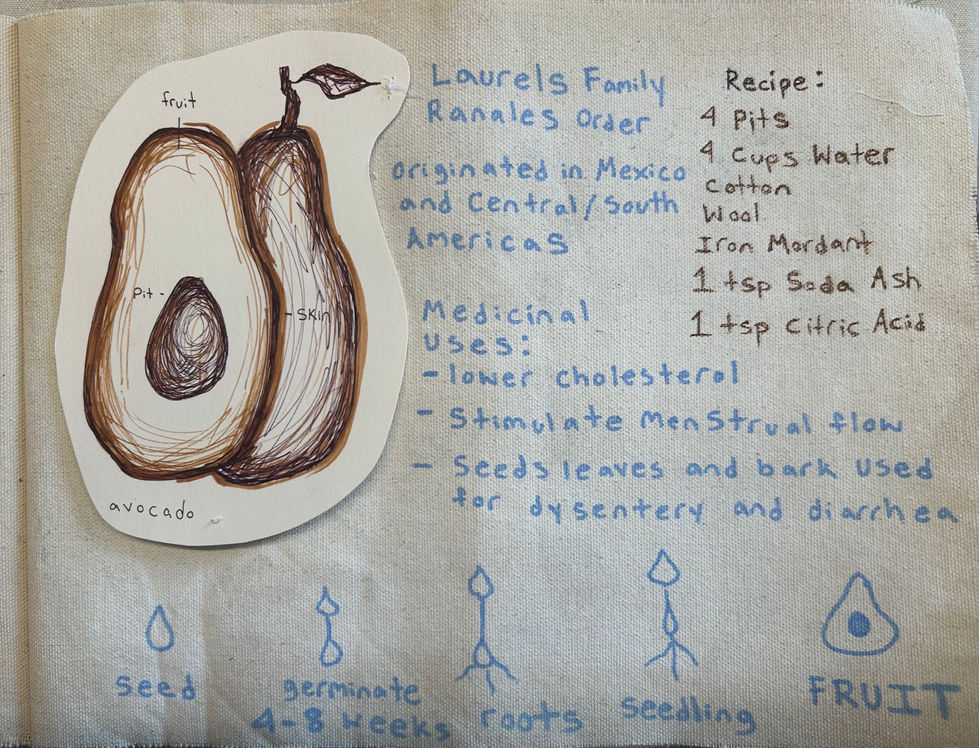 fruit
Pit -
- Skin
avocado
Laurels Family
Ranales Order
originated in Mexico
and Central/South
Americas
Medicinal
uses:
- lower cholesterol
- Stimulate menstrual flow
- Seeds leaves and bark used
for dysentery and diarrhea
Recipe:
4 Pits
4 Cups Water
Cotton
Wool
Iron Mordant
1 tsp Soda Ash
1 tsp Citric Acid
seed
germinate
4-8 weeks
roots
seedling
FRUIT